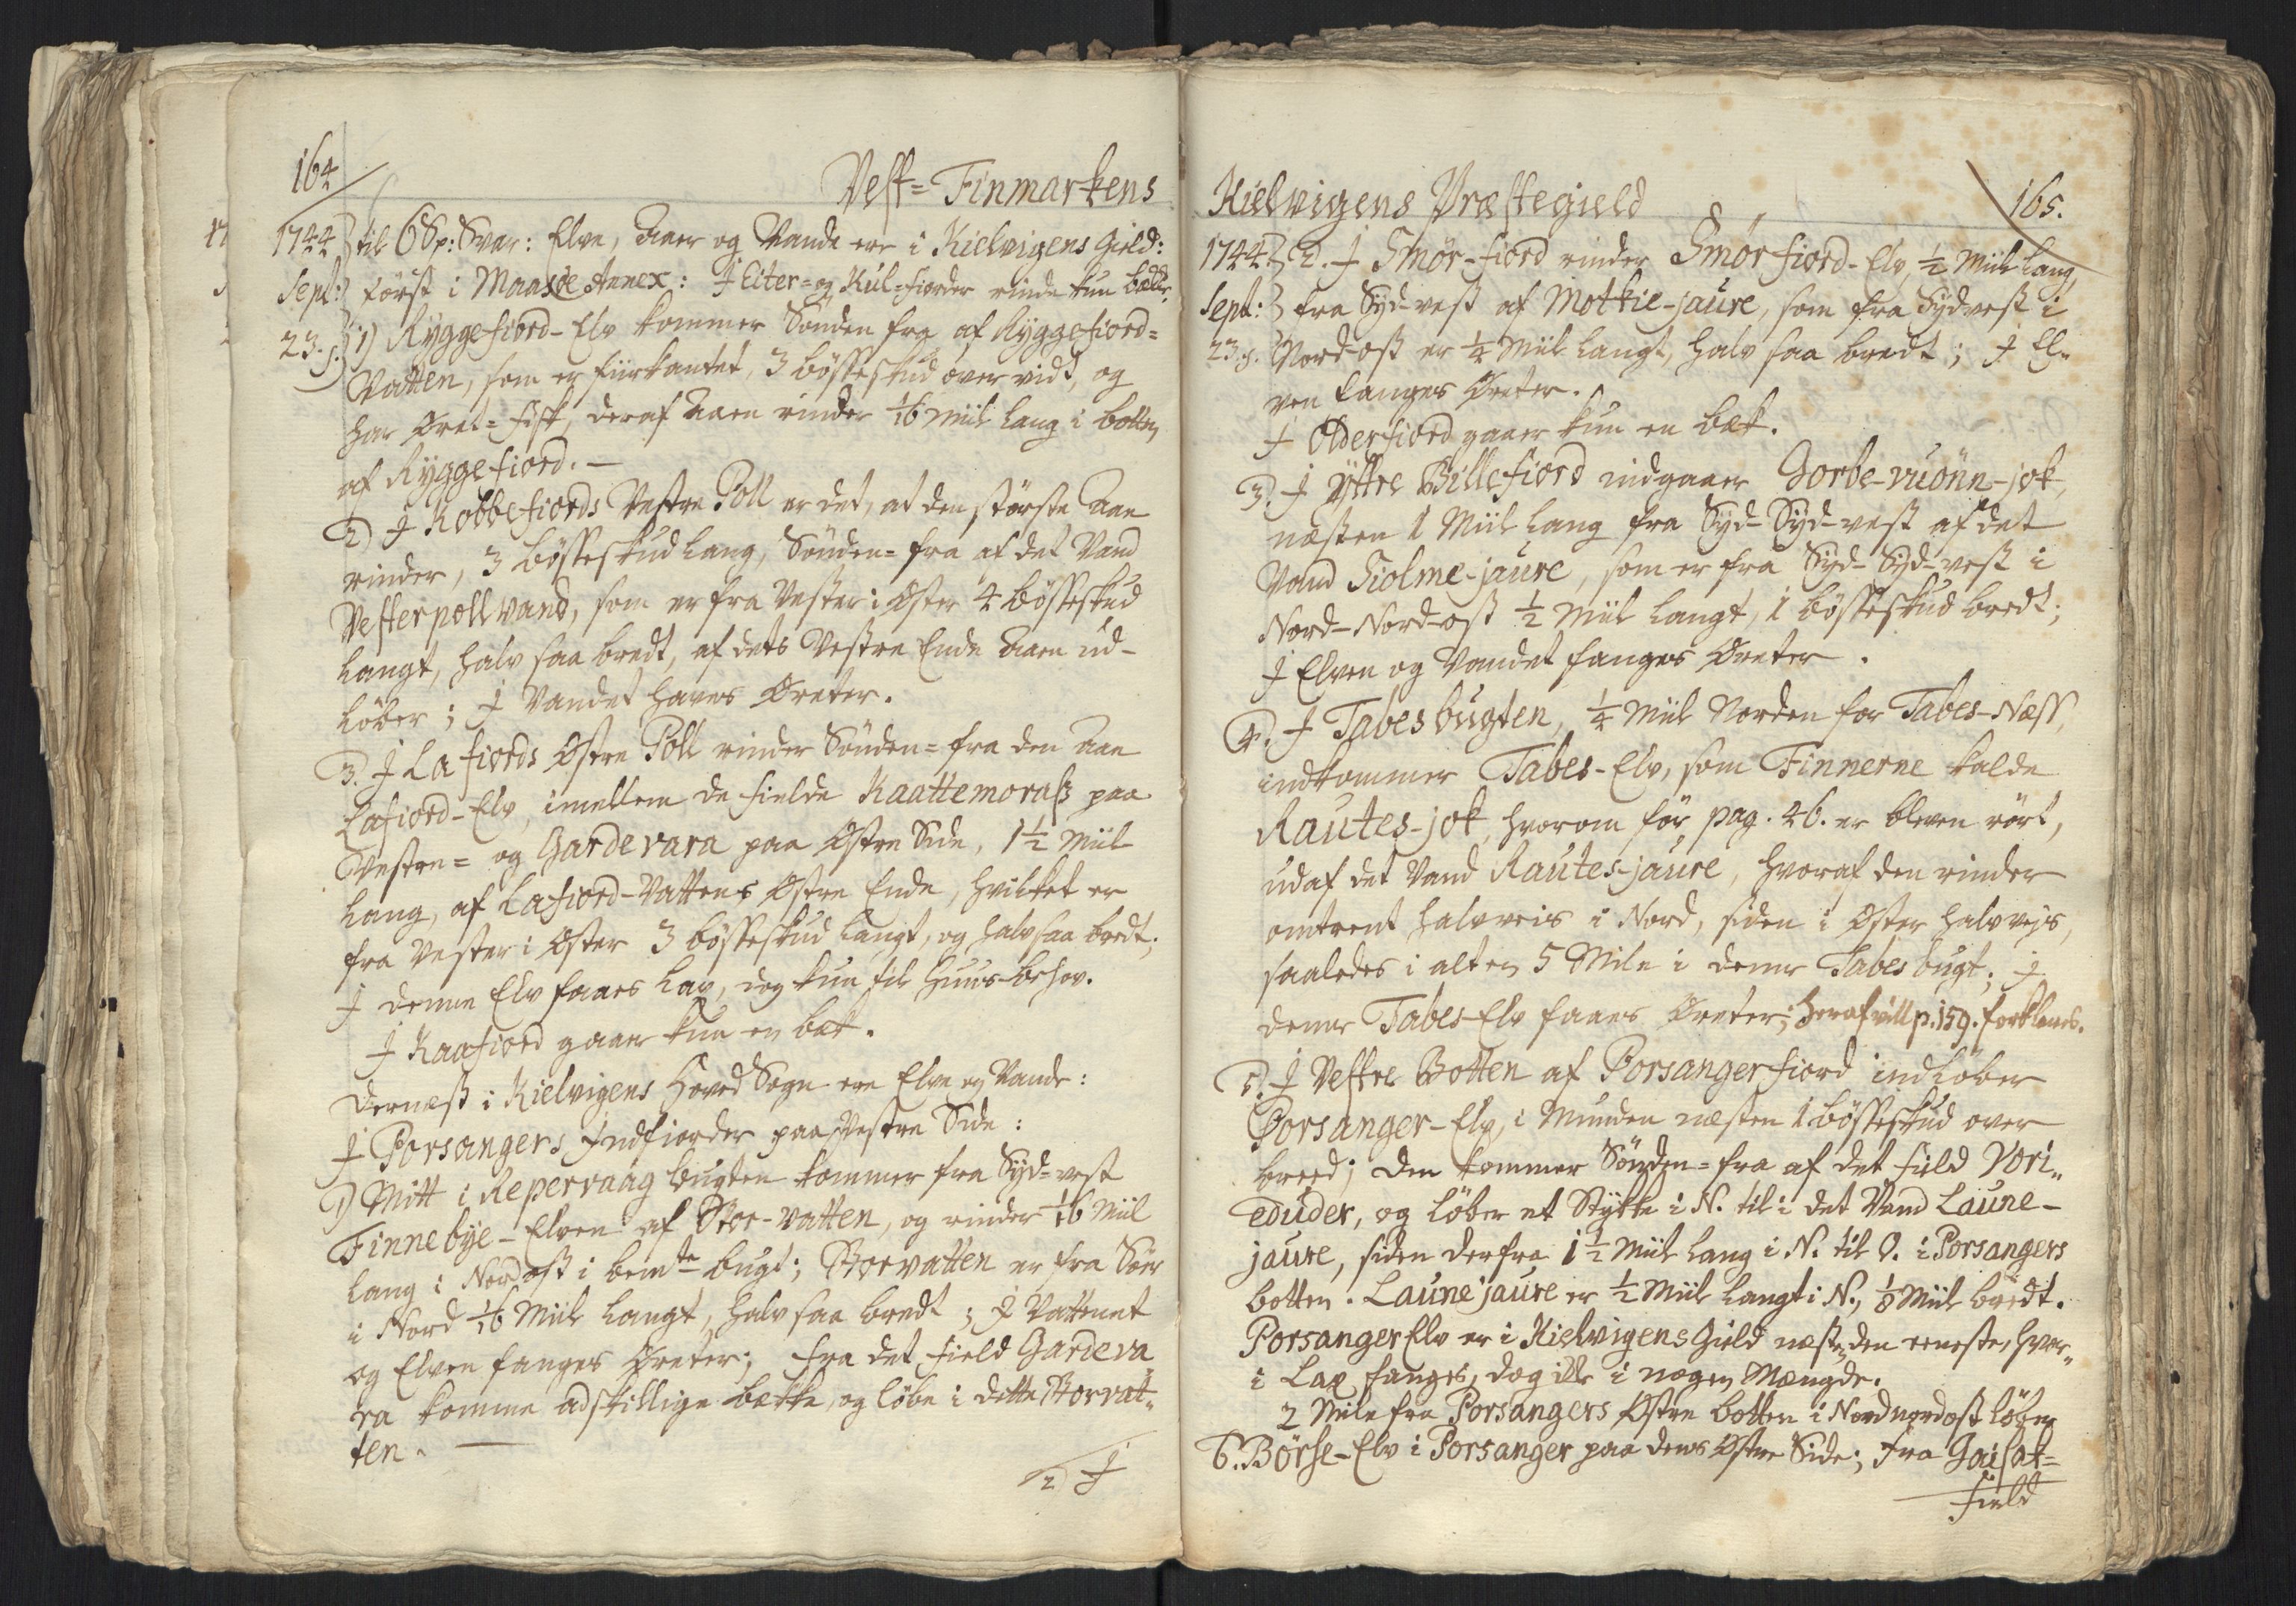 164
Vest=Finmarkens
1744 til 6 Sp: Svar: Elve, Aaer og Vande ere i Kielvigens Gield:
Sept: først i Maasøe Annex: I Eiter= og Kul-fiorder rinde kun bække,
23. 1) Ryggefiord-Elv kommer Sønden fra af Ryggefiord=
Vatten, som er fiirkantet, 3 bøsseskud over vidt, og
har Øret=fisk, deraf Aaen rinder 1/16 Miil lang i botten
af Ryggefiord. —
2) I Kobbefiords Vestre Poll er det, at den største Aae
rinder, 3 bøsseskud lang, Sønden=fra af det Vand
Vesterpollvand, som er fra Vester i Øster 4 bøsseskud
langt, halv saa bredt, af dets Vestre Ende Aaen ud-
løber; I Vandet haves Øreter.
3. I Lafiords Østre Poll rinder Sønden=fra den Aae
Lafiord-Elv, imellem de fielde Kaattemoraß paa
Vestre= og Gardevara paa Østre Side, 1½ Miil
lang, af Lafiord-Vattens Østre Ende, hvilket er
fra Vester i Øster 3 bøsseskud langt, og halv saa bredt;
I denne Elv faaes Lax, dog kun til Huus-behov.
I Kaafiord gaaer kun en bæk.
Dernæst i Kielvigens Hoved Sogn ere Elve og Vande:
I Porsangers Indfiorder paa Vestre Side:
1) Mitt i Repervaag bugten kommer fra Syd=vest
Finnebye-Elven af Stor-vatten, og rinder 1/16 Miil
lang i Nordost i bemte bugt; Storvatten er fra Sør
i Nord 1/16 Miil langt, halv saa bredt; I Vattenet
og Elven fanges Øreter; fra det field Gardeva
ra komme adskillige bække, og løbe i dette Storvat„
ten. —
2) I
Kielvigens Præstegield
165.
1744 2. I Smør-fiord rinder Smørfiord-Elv, ½ Miil lang,
Sept: fra Syd-vest af Motkie-jaure, som fra Sydvest i
23. Nord-ost er ¼ Miil langt, halv saa bredt; I El„
ven fanges Øreter.
I Olderfiord gaaer kun en bæk.
3. I Yttre Billefiord indgaaer Gorbe-vuonn-jok,
næsten 1 Miil lang fra Syd-Syd-vest af det
Vand Siolme-jaure, som er fra Syd-Syd-vest i
Nord-Nord-ost ½ Miil langt, 1 bøsseskud bredt;
I Elven og Vandet fanges Øreter.
4. I Tabesbugten, ¼ Miil Norden for Tabes-Næss,
indkommer Tabes-Elv, som Finnerne kalde
Rautes-jok, hvorom før pag. 46. er bleven rørt,
udaf det Vand Rautes-jaure, hvoraf den rinder
omtrent halvveis i Nord, siden i Øster halvvejs,
saaledes i alt en 5 Mile i denne Tabes bugt; I
denne Tabes-Elv faaes Øreter; heraf vill p. 159. forklares.
5. I Vestre Botten af Porsangerfiord indløber
Porsanger-Elv, i Munden næsten 1 bøsseskud over
breed; den kommer Sønden=fra af det field Vori„
eduder, og løber et Stykke i N. til i det Vand Laune-
jaure, siden derfra 1½ Miil lang i N. til O. i Porsangers
botten. Launejaure er ½ Miil langt i N., 1/8 Miil bredt.
Porsanger Elv er i Kielvigens Gield næsten den eeneste, hvor„
i Lax fanges, dog ikke i nogen Mængde.
2 Mile fra Porsangers Østre botten i Nordnordost løber
6. Børse-Elv i Porsanger paa dens Østre Side; fra Gaisak=
field